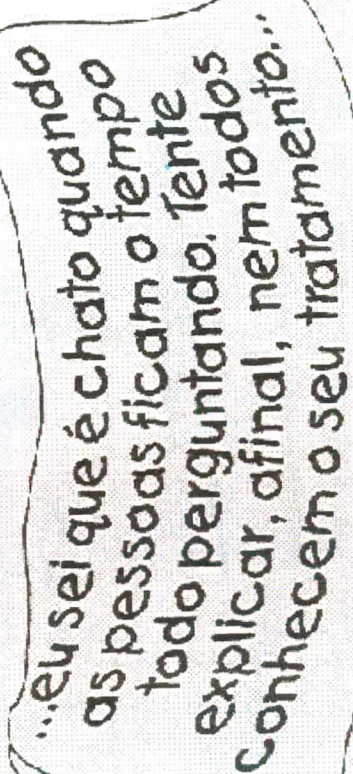 ...eu sei que é chato quando
as pessoas ficam o tempo
todo perguntando. Tente
explicar, afinal, nem todos
conhecem o seu tratamento...